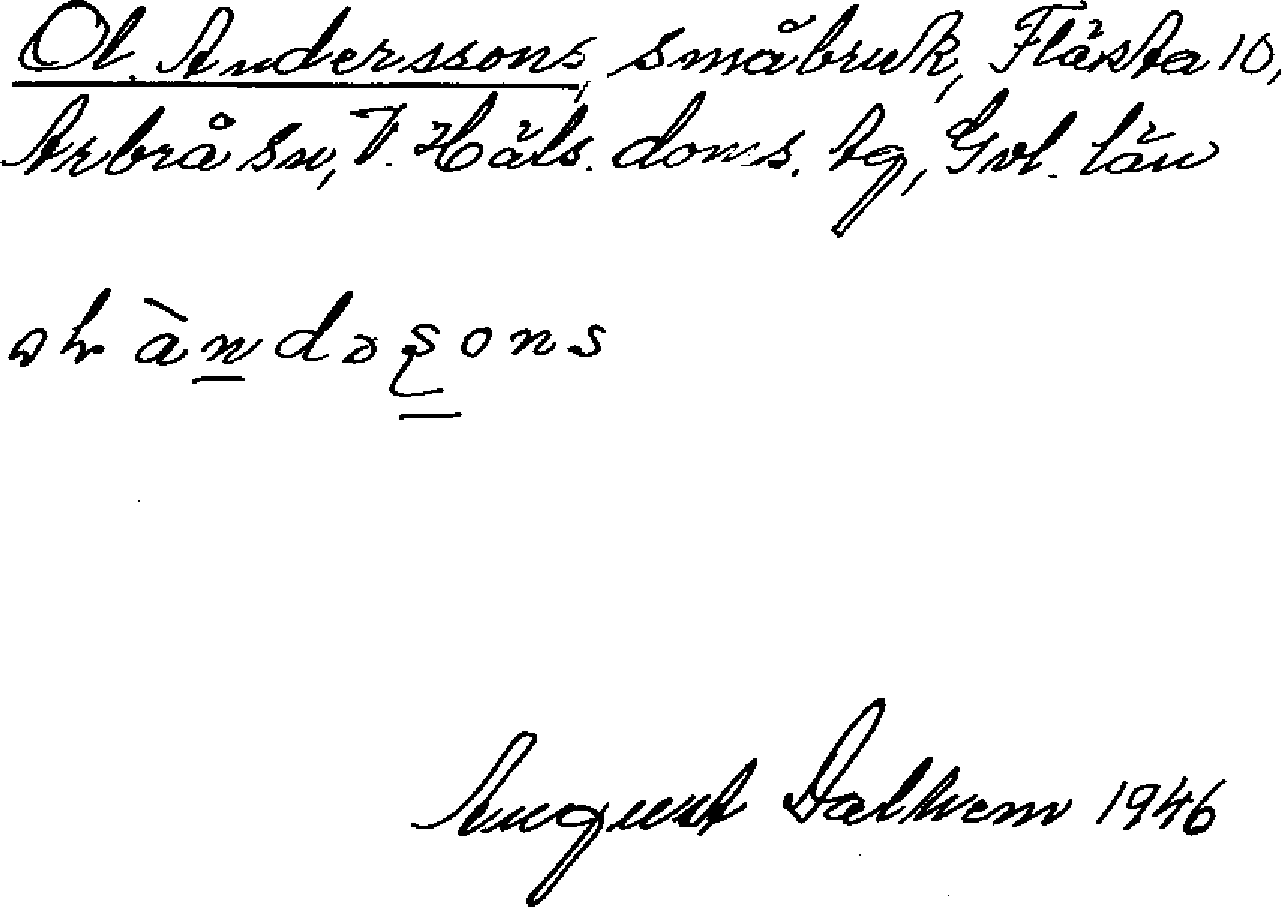 Ol. Anderssons, småbruk, Flästa 10,
Arbrå sn, V. Häls. doms. tg, Gvl. län
àndəʂons
August Dalhem 1946